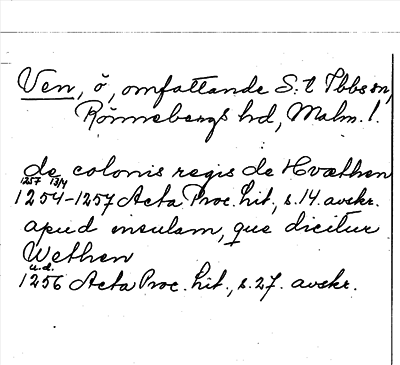 Ven, ö, omfattande S:t Ibbs sn,
Rönnebergs hd, Malm. l.
de colonis regis de Hvæthen
1257 13/4
1254-1257 Acta Proc. lit., s. 14. avskr.
apud insulam, que dicitur
Wethen
u.d.
1256 Acta Proc. lit., s. 27. avskr.